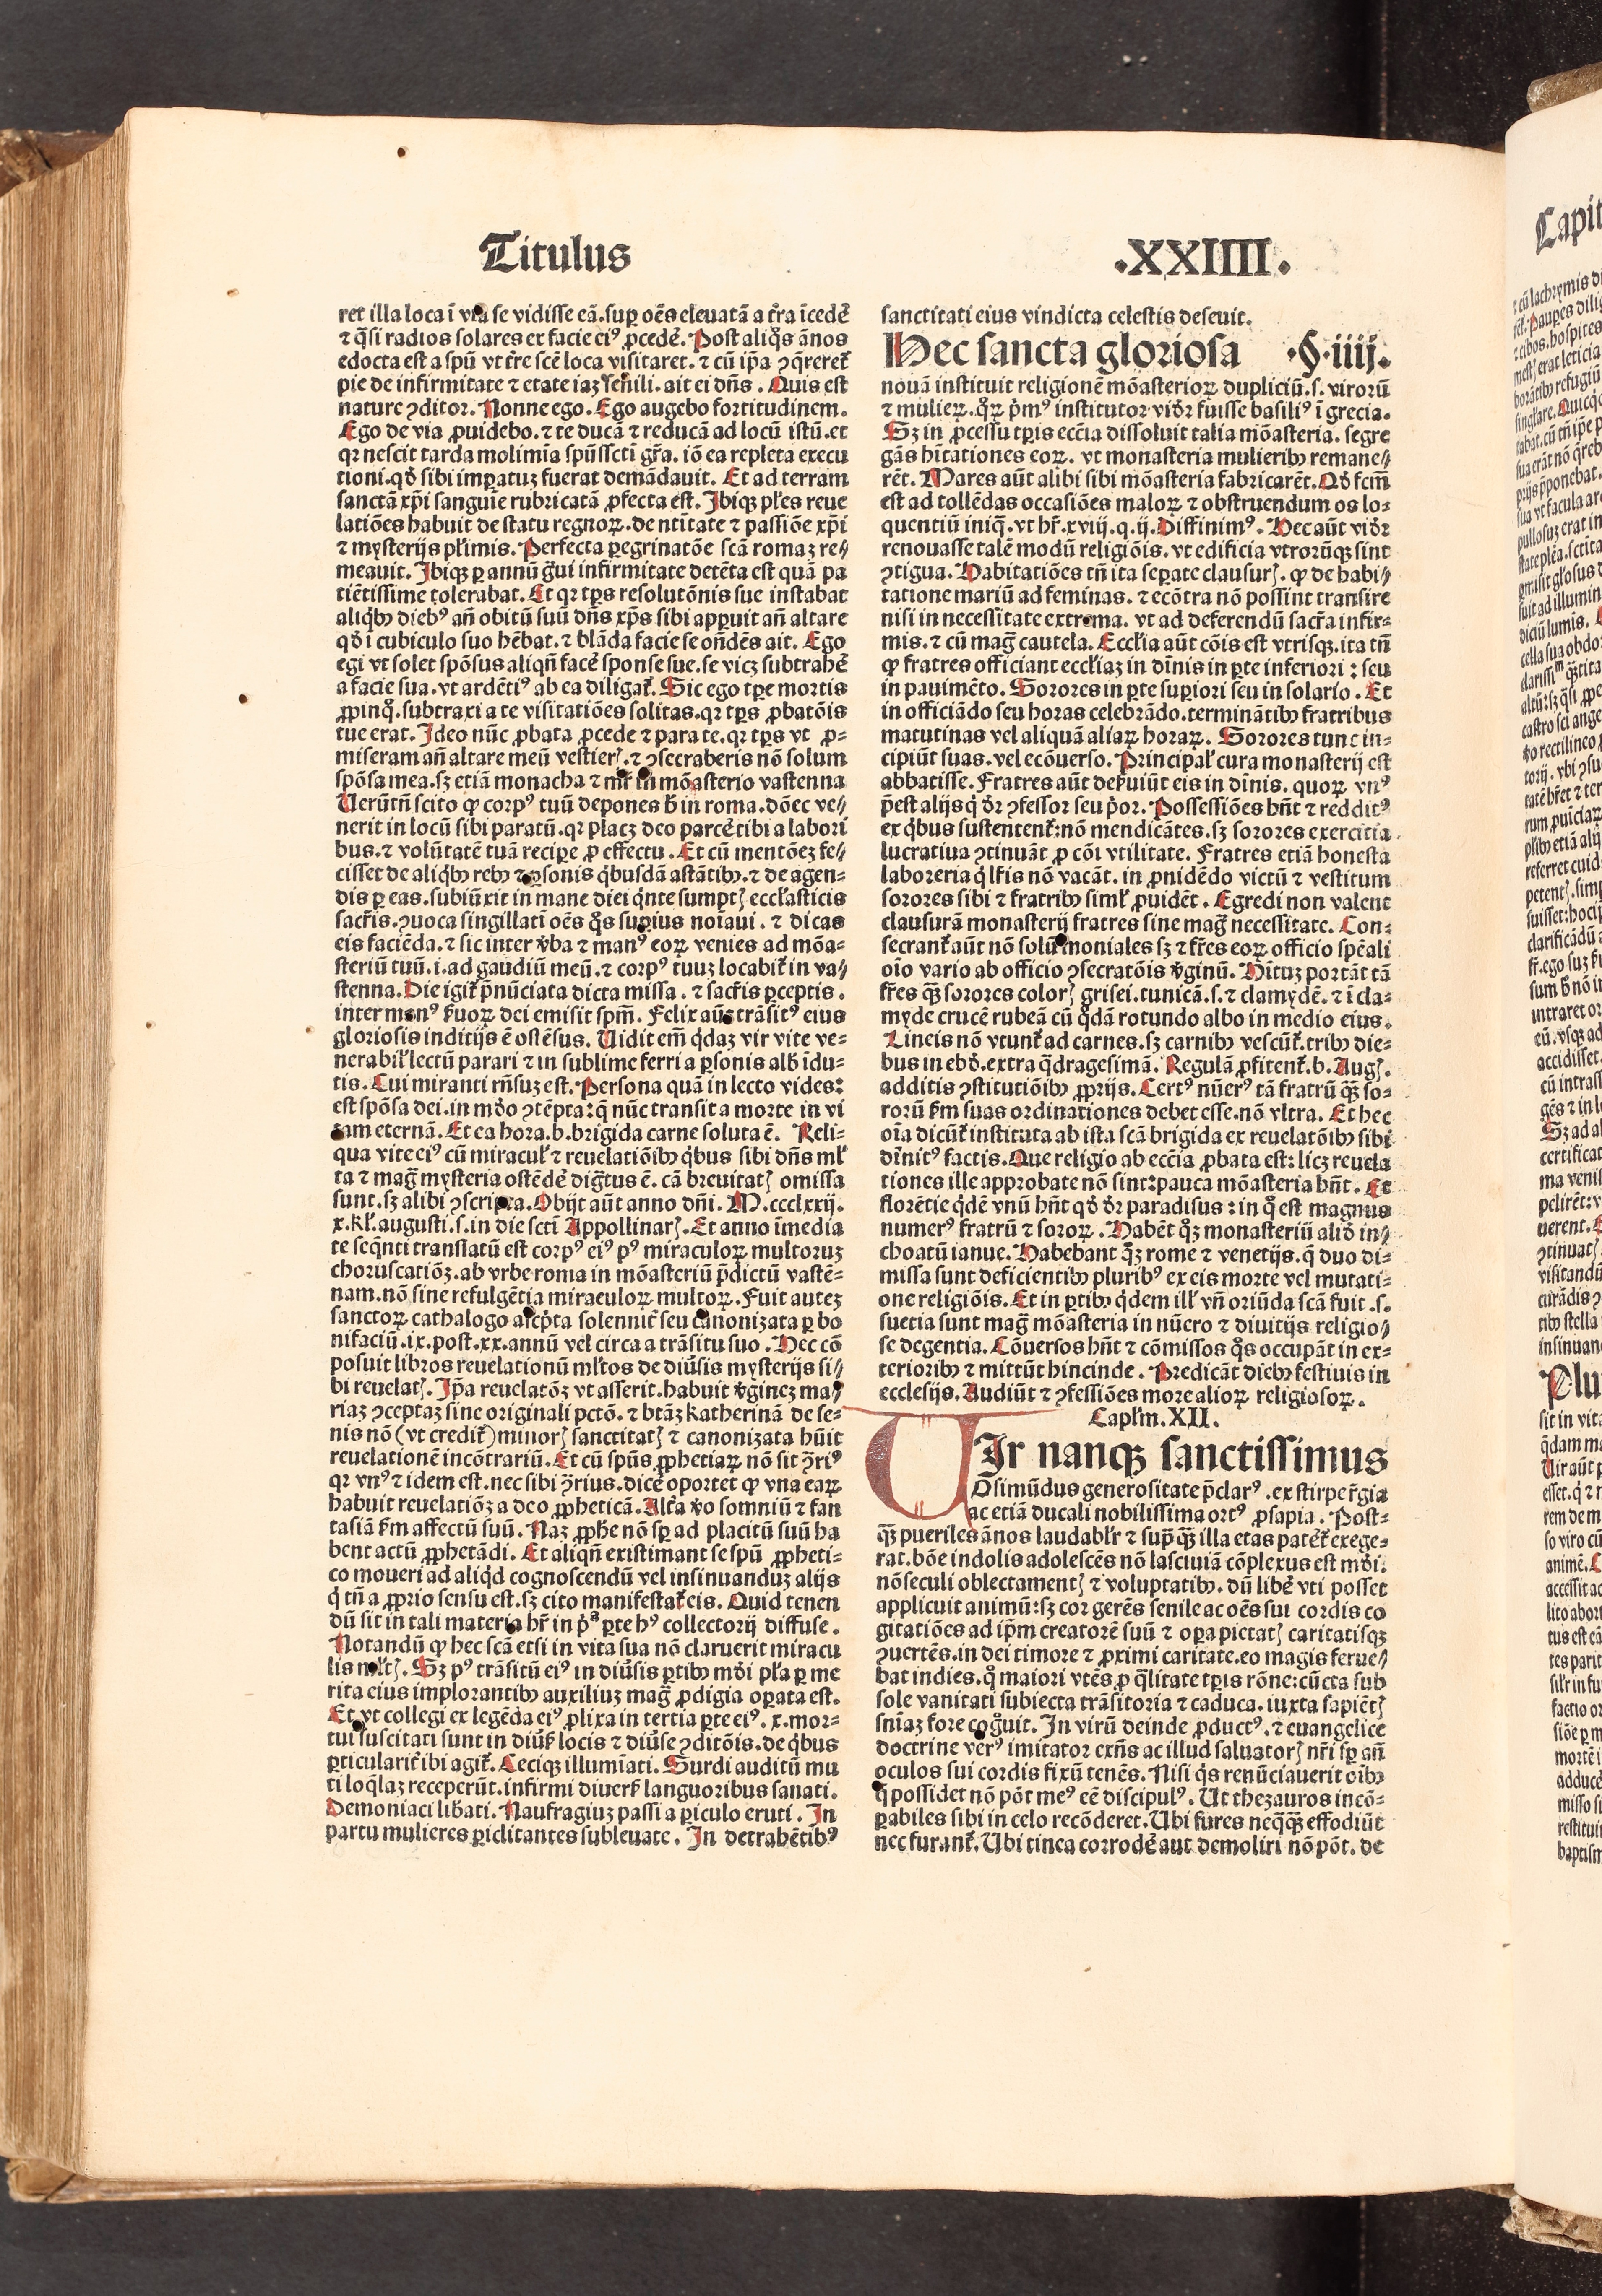 Titulus
.XXIIII.
ret illa loca ī via se vidisse eā.suꝑ oēs eleuatā a tr̄a īcedē
⁊ q̄si radios solares ex facie eiꝰ ꝓcedē. Post aliq̊s ānos
edocta est a spū vt tr̄e scē loca visitaret. ⁊ cū ip̄a ꝯq̄reret̃
pie de infirmitate ⁊ etate iaꝫ senili. ait ei dn̄s . Quis est
nature ꝯditor. Nonne ego. Ego augebo fortitudinem.
Ego de via ꝓuidebo. ⁊ te ducā ⁊ reducā ad locū istū. et
qꝛ nescit tarda molimia spūsscti gr̄a. iō ea repleta execu
tioni. qd̄ sibi imꝑatuꝫ fuerat demādauit. Et ad terram
sanctā xp̄i sanguīe rubricatā ꝓfecta est. Ibiqꝫ pl̄es reue
latiōes habuit de statu regnoꝝ. de ntitate ⁊ passiōe xp̄i
⁊ mysterijs pl̄imis. Perfecta ꝑegrinatōe scā romaꝫ re⸗
meauit. Ibiqꝫ ꝑ annū g̊ui infirmitate detēta est quā pa
tiētissime tolerabat. Et qꝛ tꝑs resolutōnis sue instabat
aliq̊bꝫ diebꝰ an̄ obitū suū dn̄s xp̄s sibi apꝑuit an̄ altare
qd̄ ī cubiculo suo hēbat. ⁊ blāda facie se on̄dēs ait. Ego
egi vt solet spōsus aliqn̄ facē sponse sue. se vicꝫ subtrahē
a facie sua. vt ardētiꝰ ab ea diligat̃. Sic ego tꝑe mortis
ꝓpinq̊. subtraxi a te visitatiōes solitas. qꝛ tꝑs ꝓbatōis
tue erat. Ideo nūc ꝓbata ꝓcede ⁊ para te. qꝛ tꝑs vt ꝓ⸗
miseram an̄ altare meū vestierꝭ. ⁊ ꝯsecraberis nō solum
spōsa mea. sꝫ etiā monacha ⁊ mr̄ in mōasterio vastenna
Uerūtn̄ scito ꝙ corpꝰ tuū depones h̄ in roma. dōec ve⸗
nerit in locū sibi paratū. qꝛ placꝫ deo parcē tibi a labori
bus. ⁊ volūtatē tuā recipe ꝓ effectu. Et cū mentōeꝫ fe⸗
cisset de aliq̊bꝫ rebꝫ ⁊ ꝑsonis q̊busdā astātibꝫ. ⁊ de agen⸗
dis ꝑ eas. subiūxit in mane diei q̊nte sumptꝭ eccl̄asticis
sacr̄is. ꝯuoca singillatī oēs q̊s suꝑius noīaui. ⁊ dicas
eis faciēda. ⁊ sic inter v̄ba ⁊ manꝰ eoꝝ venies ad mōa⸗
steriū tuū. i. ad gaudiū meū. ⁊ corpꝰ tuuꝫ locabit̃ in va⸗
stenna. Die igit̃ p̄nūciata dicta missa . ⁊ sacr̄is ꝑceptis .
inter manꝰ ẜuoꝝ dei emisit spm̄. Felix aūt trāsitꝰ eius
gloriosis inditijs ē ostēsus. Uidit em̄ q̊daꝫ vir vite ve⸗
nerabil̕ lectū parari ⁊ in sublime ferri a ꝑsonis alb̄ īdu⸗
tis. Cui miranti rn̄suꝫ est. Persona quā in lecto vides:
est spōsa dei. in mōo ꝯtēpta: q̄ nūc transit a morte in vi
tam eternā. Et ea hora. b. brigida carne soluta ē. Reli⸗
qua vite eiꝰ cū miracul̕ ⁊ reuelatiōibꝫ q̊bus sibi dn̄s ml̕
ta ⁊ mag̃ mysteria ostēdē dig̃tus ē. cā breuitatꝭ omissa
sunt. sꝫ alibi ꝯscripta. Obijt aūt anno dn̄i. M.ccclxxij.
x. kl̕. augusti. s. in die scti Appollinarꝭ. Et anno īmedia
te seq̄nti translatū est corpꝰ eiꝰ pꝰ miraculoꝝ multoruꝫ
choruscatiōꝫ. ab vrbe roma in mōasteriū p̄dictū vastē⸗
nam. nō sine refulgētia miraculoꝝ multoꝝ. Fuit auteꝫ
sanctoꝝ cathalogo ascp̄ta solennit̃ seu canonizata ꝑ bo
nifaciū. ix. post. xx. annū vel circa a trāsitu suo . Hec cō
posuit libros reuelationū ml̕tos de diūsis mysterijs si⸗
bi reuelatꝭ. Ip̄a reuelatōꝫ vt asserit. habuit v̄gineꝫ ma⸗
riaꝫ ꝯceptaꝫ sine originali pctō. ⁊ btāꝫ katherinā de se⸗
nis nō (vt credit̃) minorꝭ sanctitatꝭ ⁊ canonizata hūit
reuelationē incōtrariū. Et cū spūs ꝓphetiaꝝ nō sit ꝯ̄riꝰ
qꝛ vnꝰ ⁊ idem est. nec sibi ꝯ̄rius. dicē oportet ꝙ vna eaꝝ
habuit reuelatiōꝫ a deo ꝓpheticā. Alt̃a v̊o somniū ⁊ fan
tasiā ẜm affectū suū. Naꝫ ꝓph̄e nō sꝑ ad placitū suū ha
bent actū ꝓphetādi. Et aliqn̄ existimant se spū ꝓpheti⸗
co moueri ad aliq̊d cognoscendū vel insinuanduꝫ alijs
q̊ tn̄ a ꝓprio sensu est. sꝫ cito manifestat̃ eis. Quid tenen
dū sit in tali materia hr̄ in pͣ̊ ꝑte hꝰ collectorij diffuse .
Notandū ꝙ hec scā etsi in vita sua nō claruerit miracu
lis ml̕tꝭ. Sꝫ pꝰ trāsitū eiꝰ in diūsis ꝑtibꝫ mōi pl̕a ꝑ me
rita eius implorantibꝫ auxiliuꝫ mag̃ ꝓdigia oꝑata est.
Et vt collegi ex legēda eiꝰ ꝓlixa in tertia ꝑte eiꝰ. x. mor⸗
tui suscitati sunt in diūẜ locis ⁊ diūse ꝯditōis. de q̊bus
ꝑticularit̃ ibi agit̃. Ceciqꝫ illumīati. Surdi auditū mu
ti loq̄laꝫ receperūt. infirmi diuerẜ languoribus sanati.
Demoniaci lib̄ati. Naufragiuꝫ passi a ꝑiculo eruti. In
partu mulieres ꝑiclitantes subleuate. In detrahētibꝰ
sanctitati eius vindicta celestis deseuit.
Hec sancta gloriosa .§.iiij.
nouā instituit religionē mōasterioꝝ dupliciū. s. viroꝝū
⁊ mulieꝝ. q̊ꝝ p̊mꝰ institutor vid̄r fuisse basiliꝰ ī grecia.
Sꝫ in ꝓcessu tꝑis eccīa dissoluit talia mōasteria. segre
gās hītationes eoꝝ. vt monasteria mulieribꝫ remane⸗
rēt. Mares aūt alibi sibi mōasteria fabricarēt. Qd̄ fcm̄
est ad tollēdas occasiōes maloꝝ ⁊ obstruendum os lo⸗
quentiū iniq̄. vt hr̄. xviij. q. ij. Diffinimꝰ. Hec aūt vid̄r
renouasse talē modū religiōis. vt edificia vtrorūqꝫ sint
ꝯtigua. Habitatiōes tn̄ ita seꝑate clausurꝭ. ꝙ de habi⸗
tatione mariū ad feminas. ⁊ ecōtra nō possint transire
nisi in necessitate extrema. vt ad deferendū sacr̄a infir⸗
mis. ⁊ cū mag̃ cautela. Eccl̄ia aūt cōis est vtrisqꝫ. ita tn̄
ꝙ fratres officiant eccl̄iaꝫ in dīnis in ꝑte inferiori : seu
in pauimēto. Sorores in ꝑte suꝑiori seu in solario . Et
in officiādo seu horas celebrādo. terminātibꝫ fratribus
matutinas vel aliquā aliaꝝ horaꝝ. Sorores tunc in⸗
cipiūt suas. vel ecōuerso. Principal̕ cura monasterij est
abbatisse. Fratres aūt deẜuiūt eis in dīnis. quoꝝ vnꝰ
p̄est alijs q̊ d̄r ꝯfessor seu p̊or. Possessiōes hn̄t ⁊ redditꝰ
ex q̊bus sustentent̃: nō mendicātes. sꝫ sorores exercitia
lucratiua ꝯtinuāt ꝓ cōi vtilitate. Fratres etiā honesta
laboreria q̊ lr̄is nō vacāt. in ꝓuidēdo victū ⁊ vestitum
sorores sibi ⁊ fratribꝫ siml̕ ꝓuidēt. Egredi non valent
clausurā monasterij fratres sine mag̃ necessitate. Con⸗
secrant̃ aūt nō solū moniales sꝫ ⁊ fr̄es eoꝝ officio spēali
oīo vario ab officio ꝯsecratōis v̄ginū. Hituꝫ portāt tā
fr̄es q̄ꝫ sorores colorꝭ grisei. tunicā. s. ⁊ clamydē. ⁊ ī cla⸗
myde crucē rubeā cū q̊dā rotundo albo in medio eius.
Lineis nō vtunt̃ ad carnes. sꝫ carnibꝫ vescūt̃. tribꝫ die⸗
bus in ebd̄. extra q̄dragesimā. Regulā ꝓfitent̃. b. Augꝭ.
additis ꝯstitutiōibꝫ ꝓprijs. Certꝰ nūerꝰ tā fratrū q̄ꝫ so⸗
rorū ẜm suas ordinationes debet esse. nō vltra. Et hec
oīa dicūt̃ instituta ab ista scā brigida ex reuelatōibꝫ sibi
dīnitꝰ factis. Que religio ab eccīa ꝓbata est: licꝫ reuela
tiones ille approbate nō sint: pauca mōasteria hn̄t. Et
florētie q̊dē vnū hn̄t qd̄ d̄r paradisus : in q̊ est magnus
numerꝰ fratrū ⁊ soroꝝ. Habēt q̊ꝫ monasteriū aliōd in⸗
choatū ianue. Habebant q̊ꝫ rome ⁊ venetijs. q̄ duo di⸗
missa sunt deficientibꝫ pluribꝰ ex eis morte vel mutati⸗
one religiōis. Et in ꝑtibꝫ q̊dem ill̕ vn̄ oriūda scā fuit. s.
suetia sunt mag̃ mōasteria in nūero ⁊ diuitijs religio⸗
se degentia. Cōuersos hn̄t ⁊ cōmissos q̊s occupāt in ex⸗
terioribꝫ ⁊ mittūt hincinde . Predicāt diebꝫ festiuis in
ecclesijs. Audiūt ⁊ ꝯfessiōes more alioꝝ religiosoꝝ.
Capl̕m. XII.
UIr nanqꝫ sanctissimus
Osimūdus generositate p̄clarꝰ . ex stirpe r̄gia
ac etiā ducali nobilissima ortꝰ ꝓsapia. Post⸗
q̄ꝫ pueriles ānos laudabl̕r ⁊ sup̄ q̄ꝫ illa etas patēt̃ exege⸗
rat. bōe indolis adolescēs nō lasciuiā cōplexus est mōi.
nō seculi oblectamentꝭ ⁊ voluptatibꝫ. dū libē vti posset
applicuit animū: sꝫ cor gerēs senile ac oēs sui cordis co
gitatiōes ad ip̄m creatorē suū ⁊ oꝑa pietatꝭ caritatisqꝫ
ꝯuertēs. in dei timore ⁊ ꝓximi caritate. eo magis ferue⸗
bat indies. q̊ maiori vtēs ꝓ q̄litate tꝑis rōne: cūcta sub
sole vanitati subiecta trāsitoria ⁊ caduca. iuxta sapiētꝭ
sn̄iaꝫ fore cog̊uit. In virū deinde ꝓductꝰ. ⁊ euangelice
doctrine verꝰ imitator exn̄s ac illud saluatorꝭ nr̄i sꝑ an̄
oculos sui cordis fixū tenēs. Nisi q̊s renūciauerit oībꝫ
q̄ possidet nō pōt meꝰ eē discipulꝰ. Ut thezauros incō⸗
ꝑabiles sibi in celo recōderet. Ubi fures neq̄q̄ꝫ effodiūt
nec furant̃. Ubi tinea corrodē aut demoliri nō pōt. de